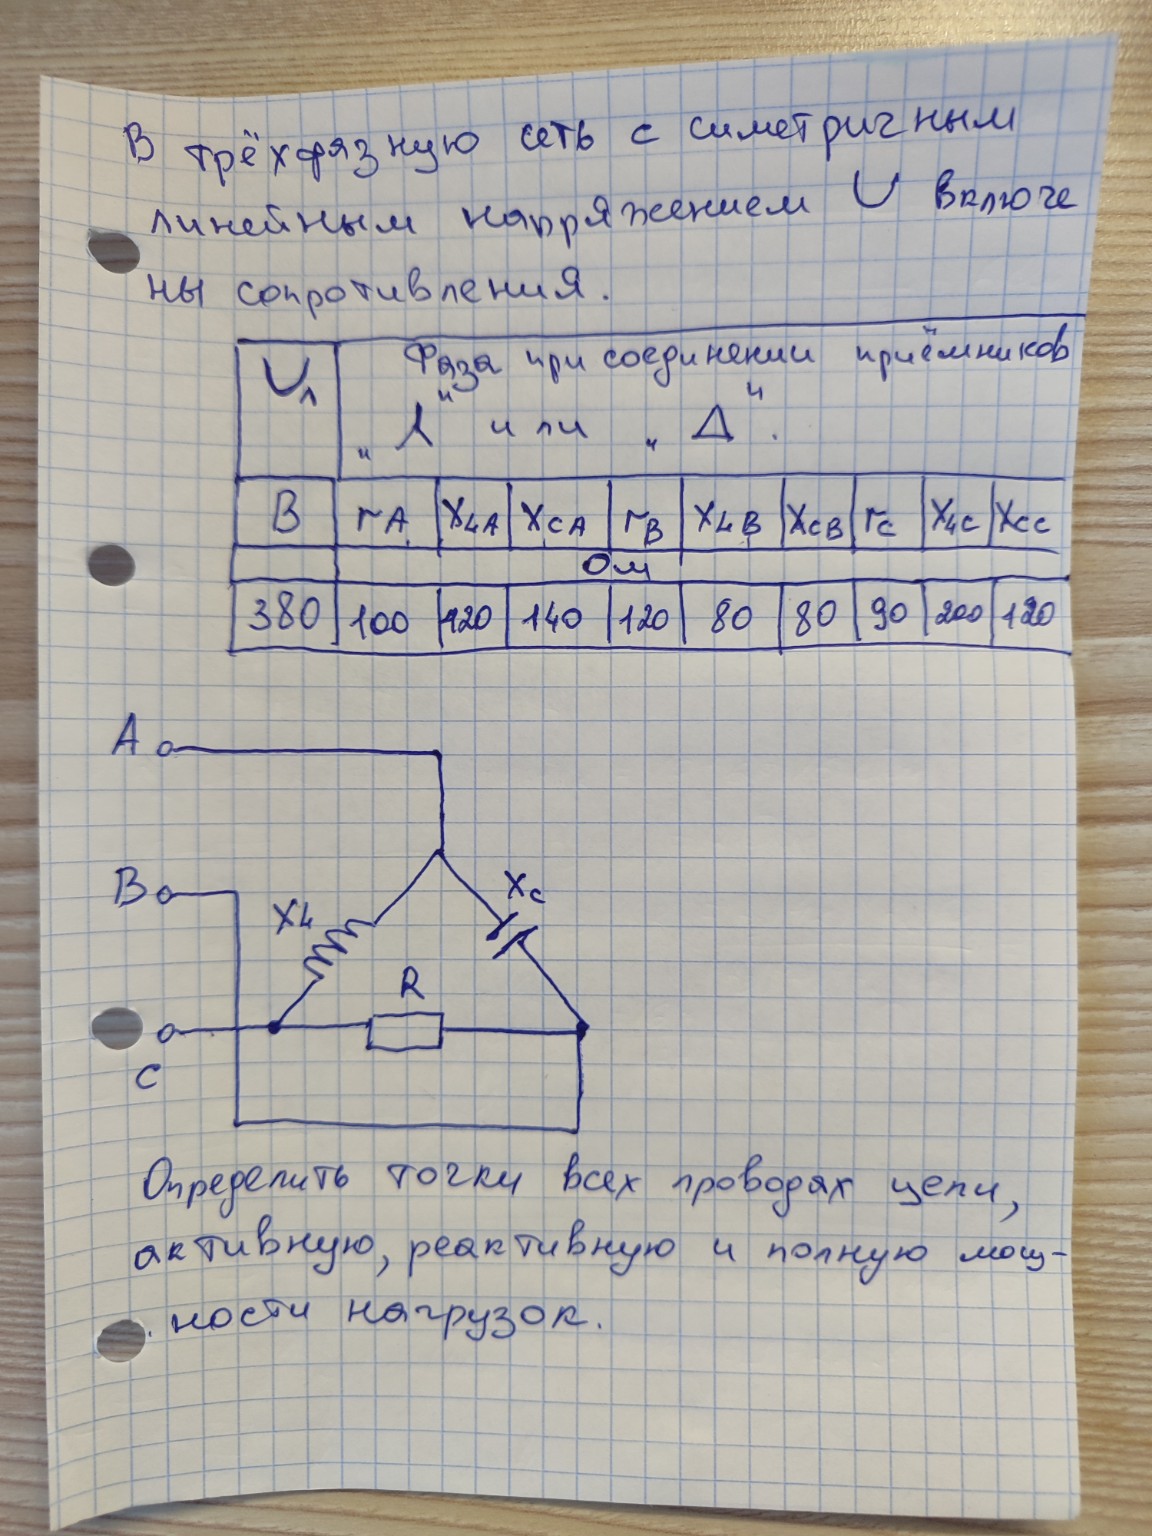 В трёхфазную сеть с симетричным
линейным напряжением U включе
ны сопротивления.
Uл Фаза при соединении приёмников
"⅄" или "Δ".
В rA XLA XCA rB XLB XCB rC XLC XCC
Ом
380 100 120 140 120 80 80 90 200 120
A
B
XL
Xc
R
C
Определить точки всех проводах цепи,
активную, реактивную и полную мощ-
ности нагрузок.